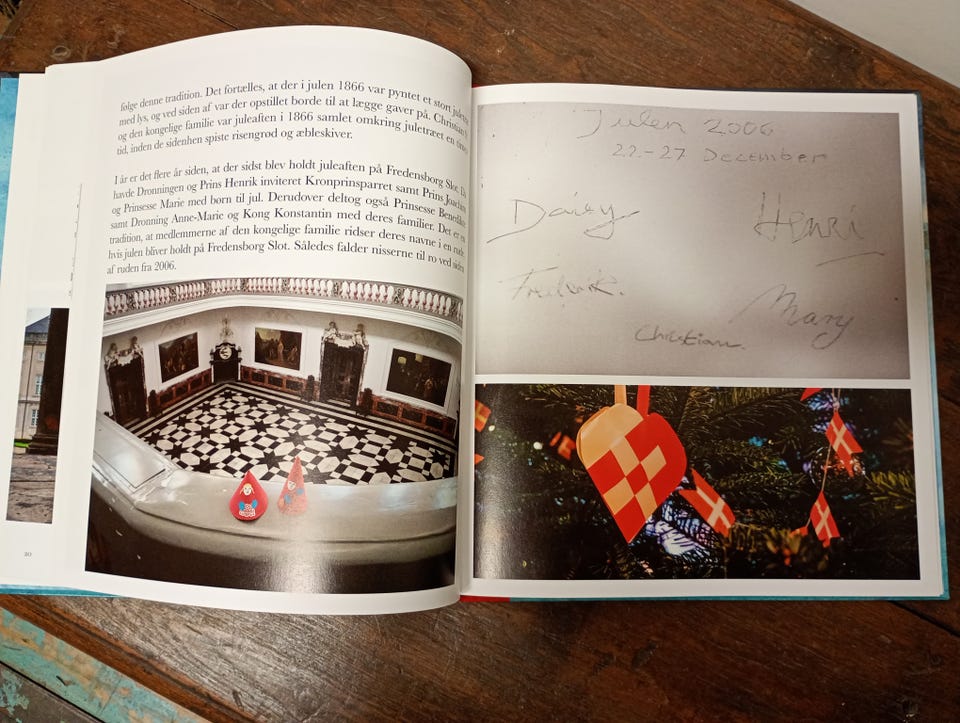 følge denne tradition. Det fortælles, at der i julen 1866 var pyntet et stort
med lys, og ved siden af var der opstillet borde til at lægge gaver på. Christian
og den kongelige familie var juleaften i 1866 samlet omkring juletræet en
tid, inden de sidenhen spiste risengrød og æbleskiver.
I år er det flere år siden, at der sidst blev holdt juleaften på Fredensborg Slot.
havde Dronningen og Prins Henrik inviteret Kronprinsparret samt Prins
og Prinsesse Marie med børn til jul. Derudover deltog også Prinsesse
samt Dronning Anne-Marie og Kong Konstantin med deres familier. Det er
tradition, at medlemmerne af den kongelige familie ridser deres navne i en
hvis julen bliver holdt på Fredensborg Slot. Således falder nisserne til ro ved siden
af ruden fra 2006.
20
Julen 2006
22.-27 December
Daisy
Henri
Frederik.
Mary
Christian.